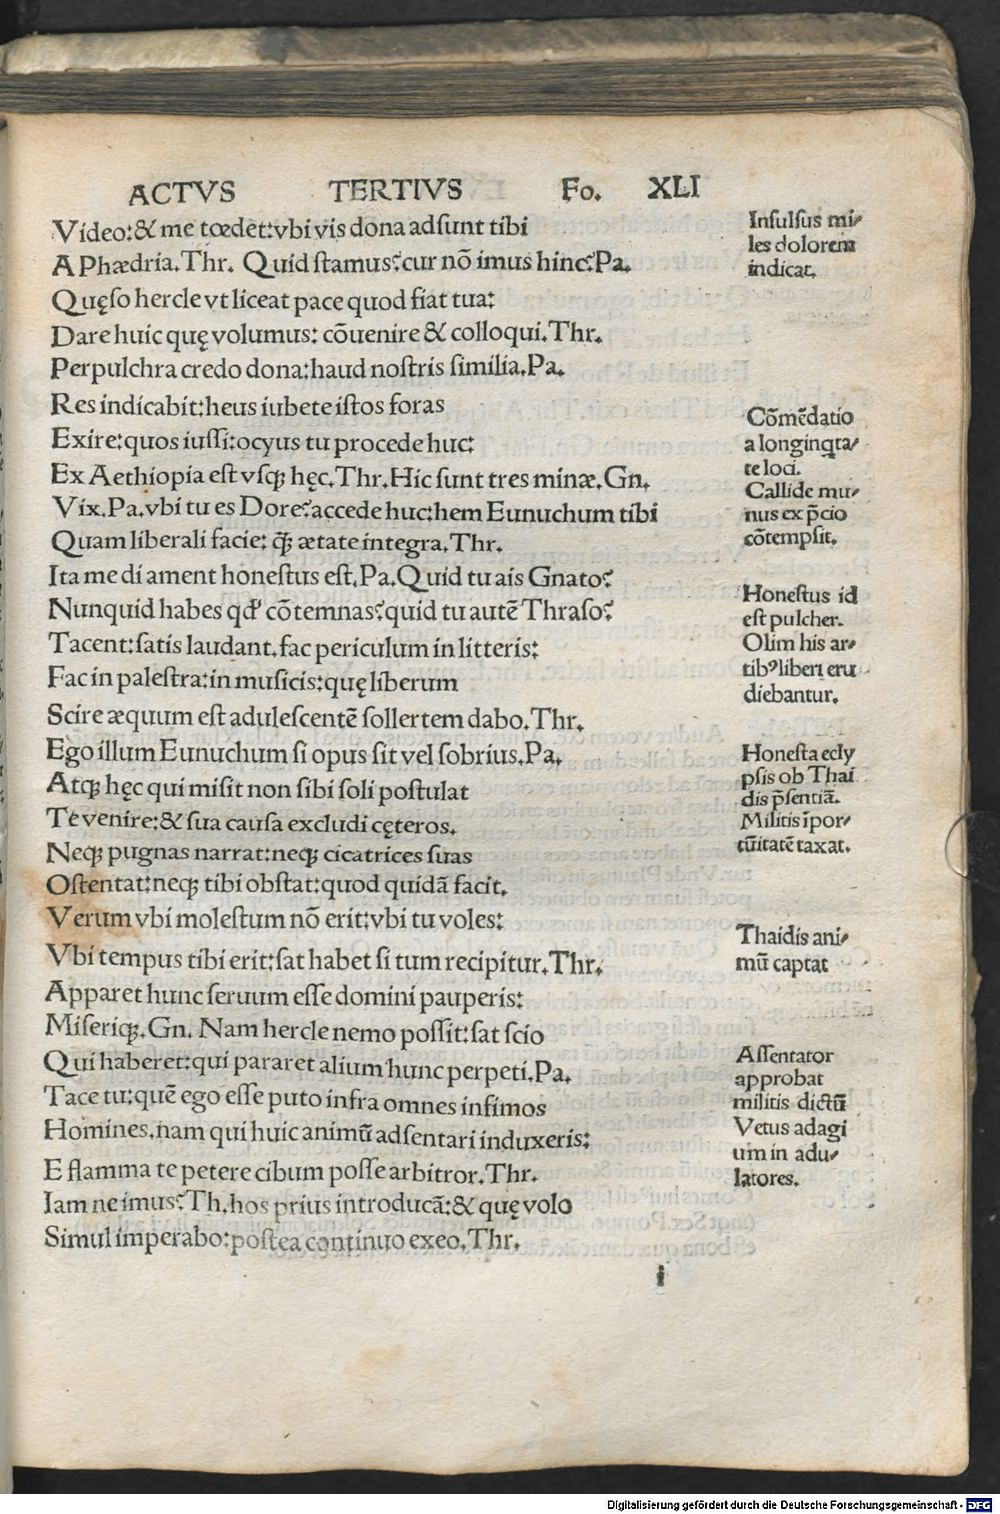 ACTVS TERTIVS Fo. XLI
Video:& me tœdet:vbi vis dona adsunt tibi
A Phædria.Thr. Quid stamus?cur nō imus hinc?Pa.
Quęso hercle vt liceat pace quod fiat tua:
Dare huic quę volumus: cōuenire & colloqui.Thr.
Perpulchra credo dona:haud nostris similia.Pa.
Res indicabit:heus iubete istos foras
Exire:quos iussi:ocyus tu procede huc:
Ex Aethiopia est vsqꝫ hęc.Thr.Hic sunt tres minæ.Gn.
Vix.Pa.vbi tu es Dore?accede huc:hem Eunuchum tibi
Quam liberali facie: q̄ꝫ ætate integra.Thr.
Ita me di ament honestus est.Pa.Quid tu ais Gnato?
Nunquid habes qđ cōtemnas?quid tu autē Thraso?
Tacent:satis laudant.fac periculum in litteris:
Fac in palestra:in musicis:quę liberum
Scire æquum est adulescentē sollertem dabo.Thr.
Ego illum Eunuchum si opus sit vel sobrius.Pa.
Atqꝫ hęc qui misit non sibi soli postulat
Te venire:& sua causa excludi cęteros.
Neqꝫ pugnas narrat:neqꝫ cicatrices suas
Ostentat:neqꝫ tibi obstat:quod quidā facit.
Verum vbi molestum nō erit:vbi tu voles:
Vbi tempus tibi erit:sat habet si tum recipitur.Thr.
Apparet hunc seruum esse domini pauperis:
Miseriqꝫ.Gn. Nam hercle nemo possit:sat scio
Qui haberet:qui pararet alium hunc perpeti.Pa.
Tace tu:quē ego esse puto infra omnes infimos
Homines.nam qui huic animū adsentari induxeris:
E flamma te petere cibum posse arbitror.Thr.
Iam ne imus?Th.hos prius introducā:& quę volo
Simul imperabo:postea continuo exeo.Thr.
i
Insulsus mi/
les dolorem
indicat.
Cōmēdatio
a longinq̄ta/
te loci.
Callide mu/
nus ex p̄cio
cōtempsit.
Honestus id
est pulcher.
Olim his ar/
tibꝰ liberi eru
diebantur.
Honesta ecly
psis ob Thai
dis p̄sentiā.
Militis īpor/
tūitatē taxat.
Thaidis ani/
mū captat
Assentator
approbat
militis dictū
Vetus adagi
um in adu/
latores.
Digitalisierung gefördert durch die Deutsche Forschungsgemeinschaft - DFG